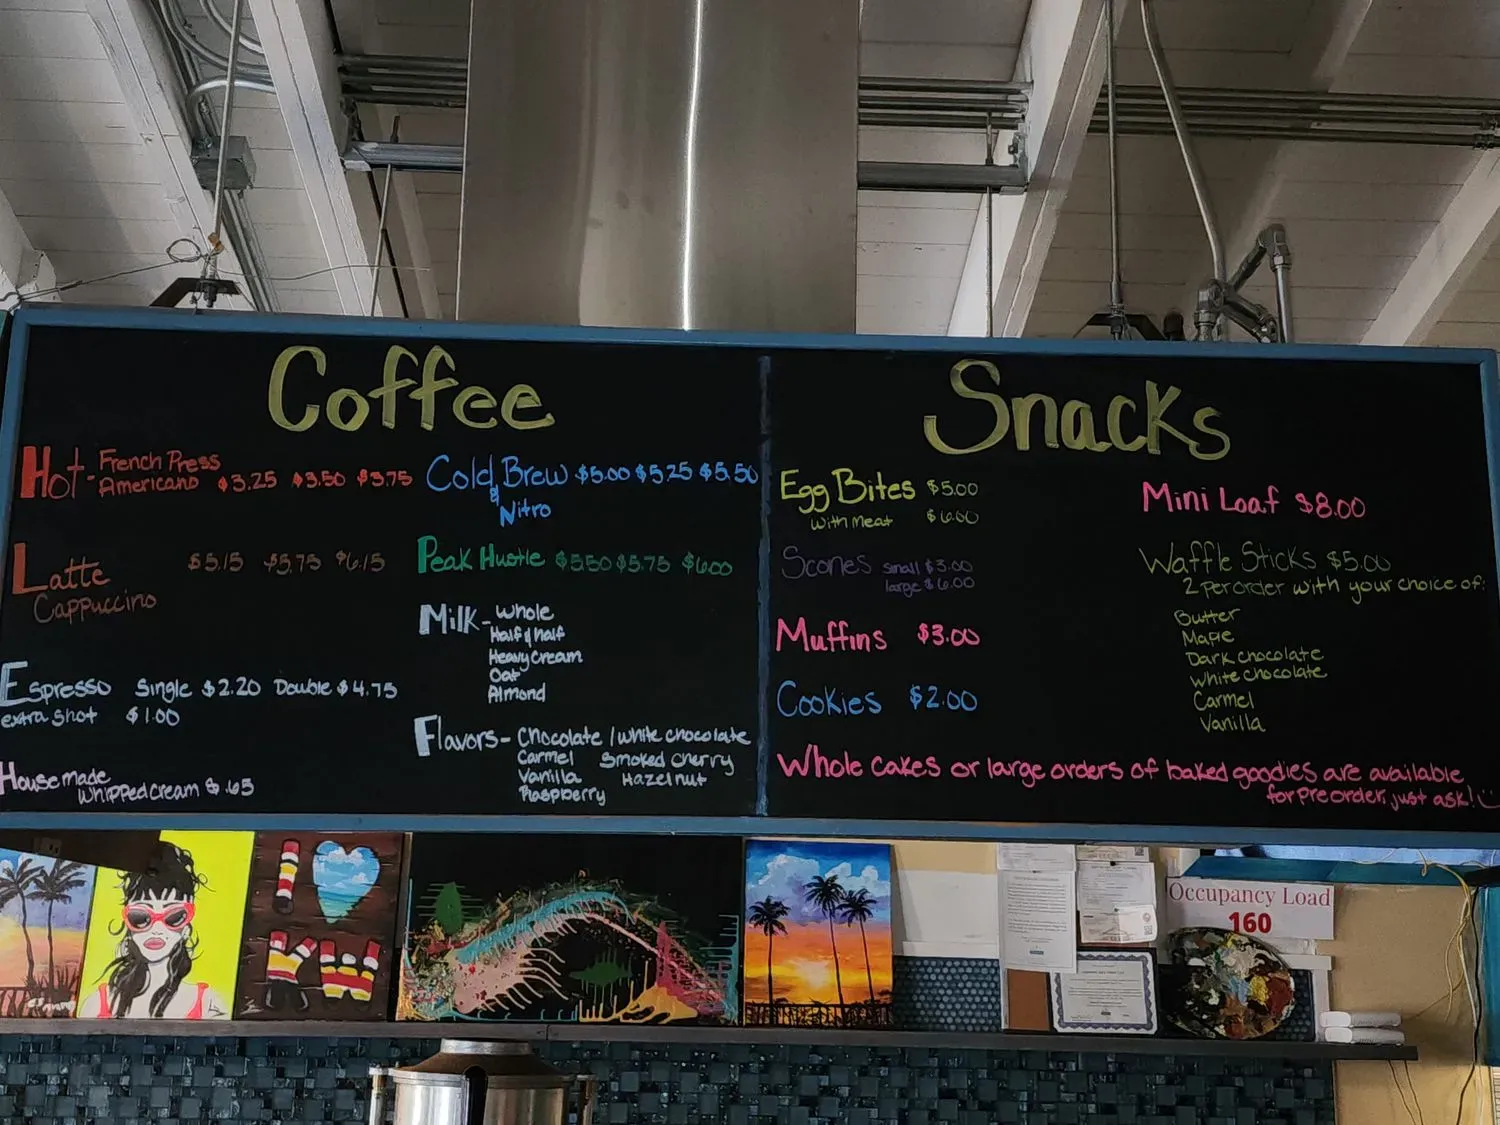 Coffee
Hot - French Press
Americano $3.25 $3.50 $3.75
Latte $5.15 $5.75 $6.15
Cappuccino
Espresso Single $2.20 Double $4.75
extra shot $1.00
Housemade
Whipped cream $.65
Cold Brew $5.00 $5.25 $5.50
&
Nitro
Peak Hustle $5.50 $5.75 $6.00
Milk - Whole
Half & half
Heavy Cream
Oat
Almond
Flavors - Chocolate / white chocolate
Carmel Smoked Cherry
Vanilla Hazelnut
Raspberry
Snacks
Egg Bites $5.00
with meat $6.00
Scones small $3.00
large $6.00
Muffins $3.00
Cookies $2.00
Mini Loaf $8.00
Waffle Sticks $5.00
2 per order with your choice of:
Butter
Maple
Dark chocolate
White chocolate
Carmel
Vanilla
Whole cakes or large orders of baked goodies are available
for preorder, just ask!
I
KW
Occupancy Load
160